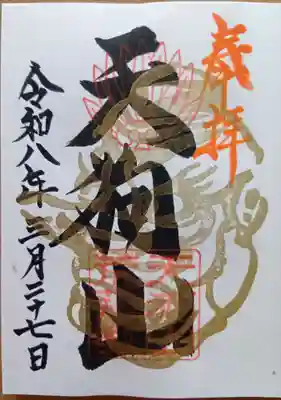 奉拝
天狗山
令和八年三月二十七日